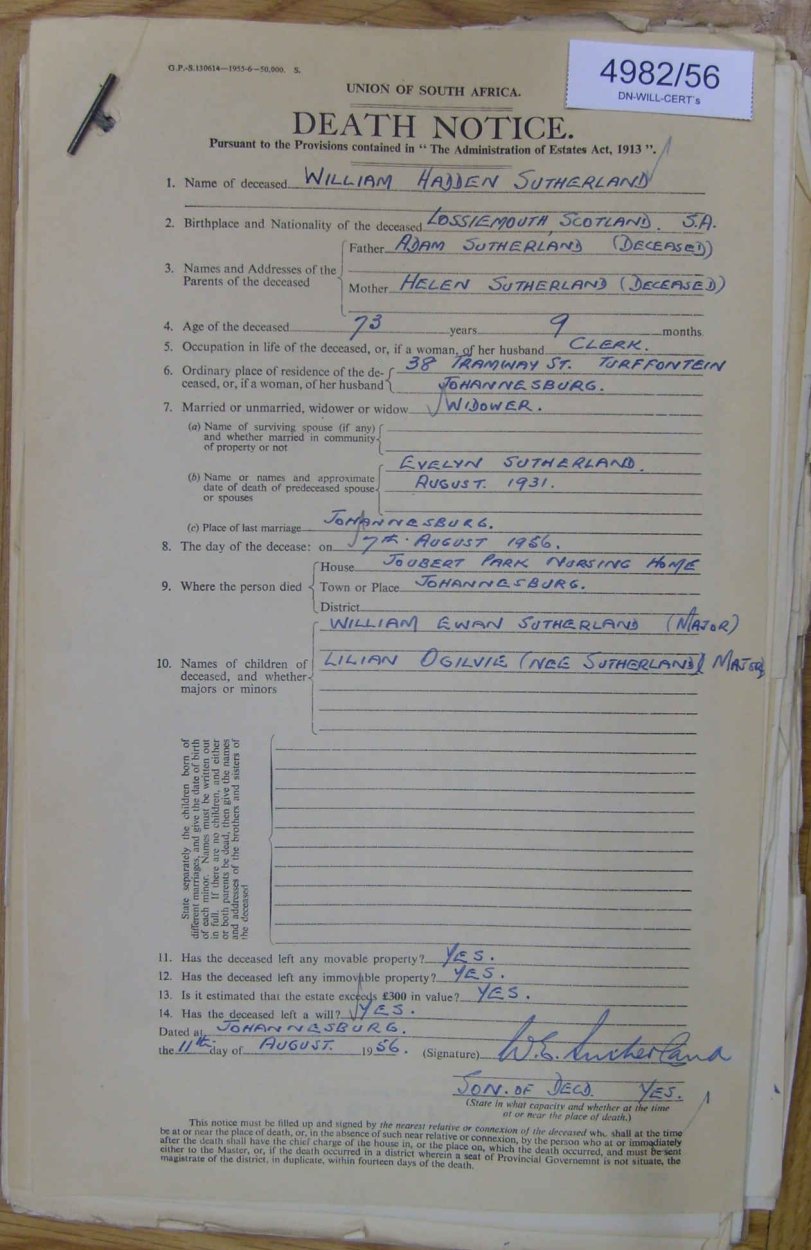 G.P.-S.130614—1955-6—50,000. S.
4982/56
DN-WILL-CERT's
UNION OF SOUTH AFRICA.
DEATH NOTICE.
Pursuant to the Provisions contained in “ The Administration of Estates Act, 1913 ”.
1. Name of deceased WILLIAM HADDEN SUTHERLAND
2. Birthplace and Nationality of the deceased LOSSIEMOUTH, SCOTLAND. S.A.
Father ADAM SUTHERLAND (DECEASED)
3. Names and Addresses of the
Parents of the deceased
Mother HELEN SUTHERLAND (DECEASED)
4. Age of the deceased 73 years 9 months
5. Occupation in life of the deceased, or, if a woman, of her husband CLERK.
6. Ordinary place of residence of the de- 38 TRAMWAY ST. TURFFONTEIN
ceased, or, if a woman, of her husband JOHANNESBURG.
7. Married or unmarried, widower or widow WIDOWER.
(a) Name of surviving spouse (if any)
and whether married in community
of property or not
EVELYN SUTHERLAND.
(b) Name or names and approximate
date of death of predeceased spouse
or spouses
AUGUST 1931.
(c) Place of last marriage JOHANNESBURG.
8. The day of the decease: on 7th AUGUST 1956.
House JOUBERT PARK NURSING HOME
9. Where the person died Town or Place JOHANNESBURG.
District
WILLIAM EWAN SUTHERLAND (MAJOR)
10. Names of children of
deceased, and whether
majors or minors
LILIAN OGILVIE (NEE SUTHERLAND) MAJOR
State separately the children born of
different marriages, and give the date of birth
of each minor. Names must be written out
in full. If there are no children, and either
or both parents be dead, then give the names
and addresses of the brothers and sisters of
the deceased
11. Has the deceased left any movable property? YES.
12. Has the deceased left any immovable property? YES.
13. Is it estimated that the estate exceeds £300 in value? YES.
14. Has the deceased left a will? YES.
Dated at JOHANNESBURG.
the 11th day of AUGUST. 1956. (Signature) W.E. Sutherland
SON. OF DECD. YES.
(State in what capacity and whether at the time
of or near the place of death.)
This notice must be filled up and signed by the nearest relative or connexion of the deceased who shall at the time
be at or near the place of death, or, in the absence of such near relative or connexion, by the person who at or immediately
after the death shall have the chief charge of the house in, or the place on, which the death occurred, and must be sent
either to the Master, or, if the death occurred in a district wherein a seat of Provincial Governemnt is not situate, the
magistrate of the district, in duplicate, within fourteen days of the death.